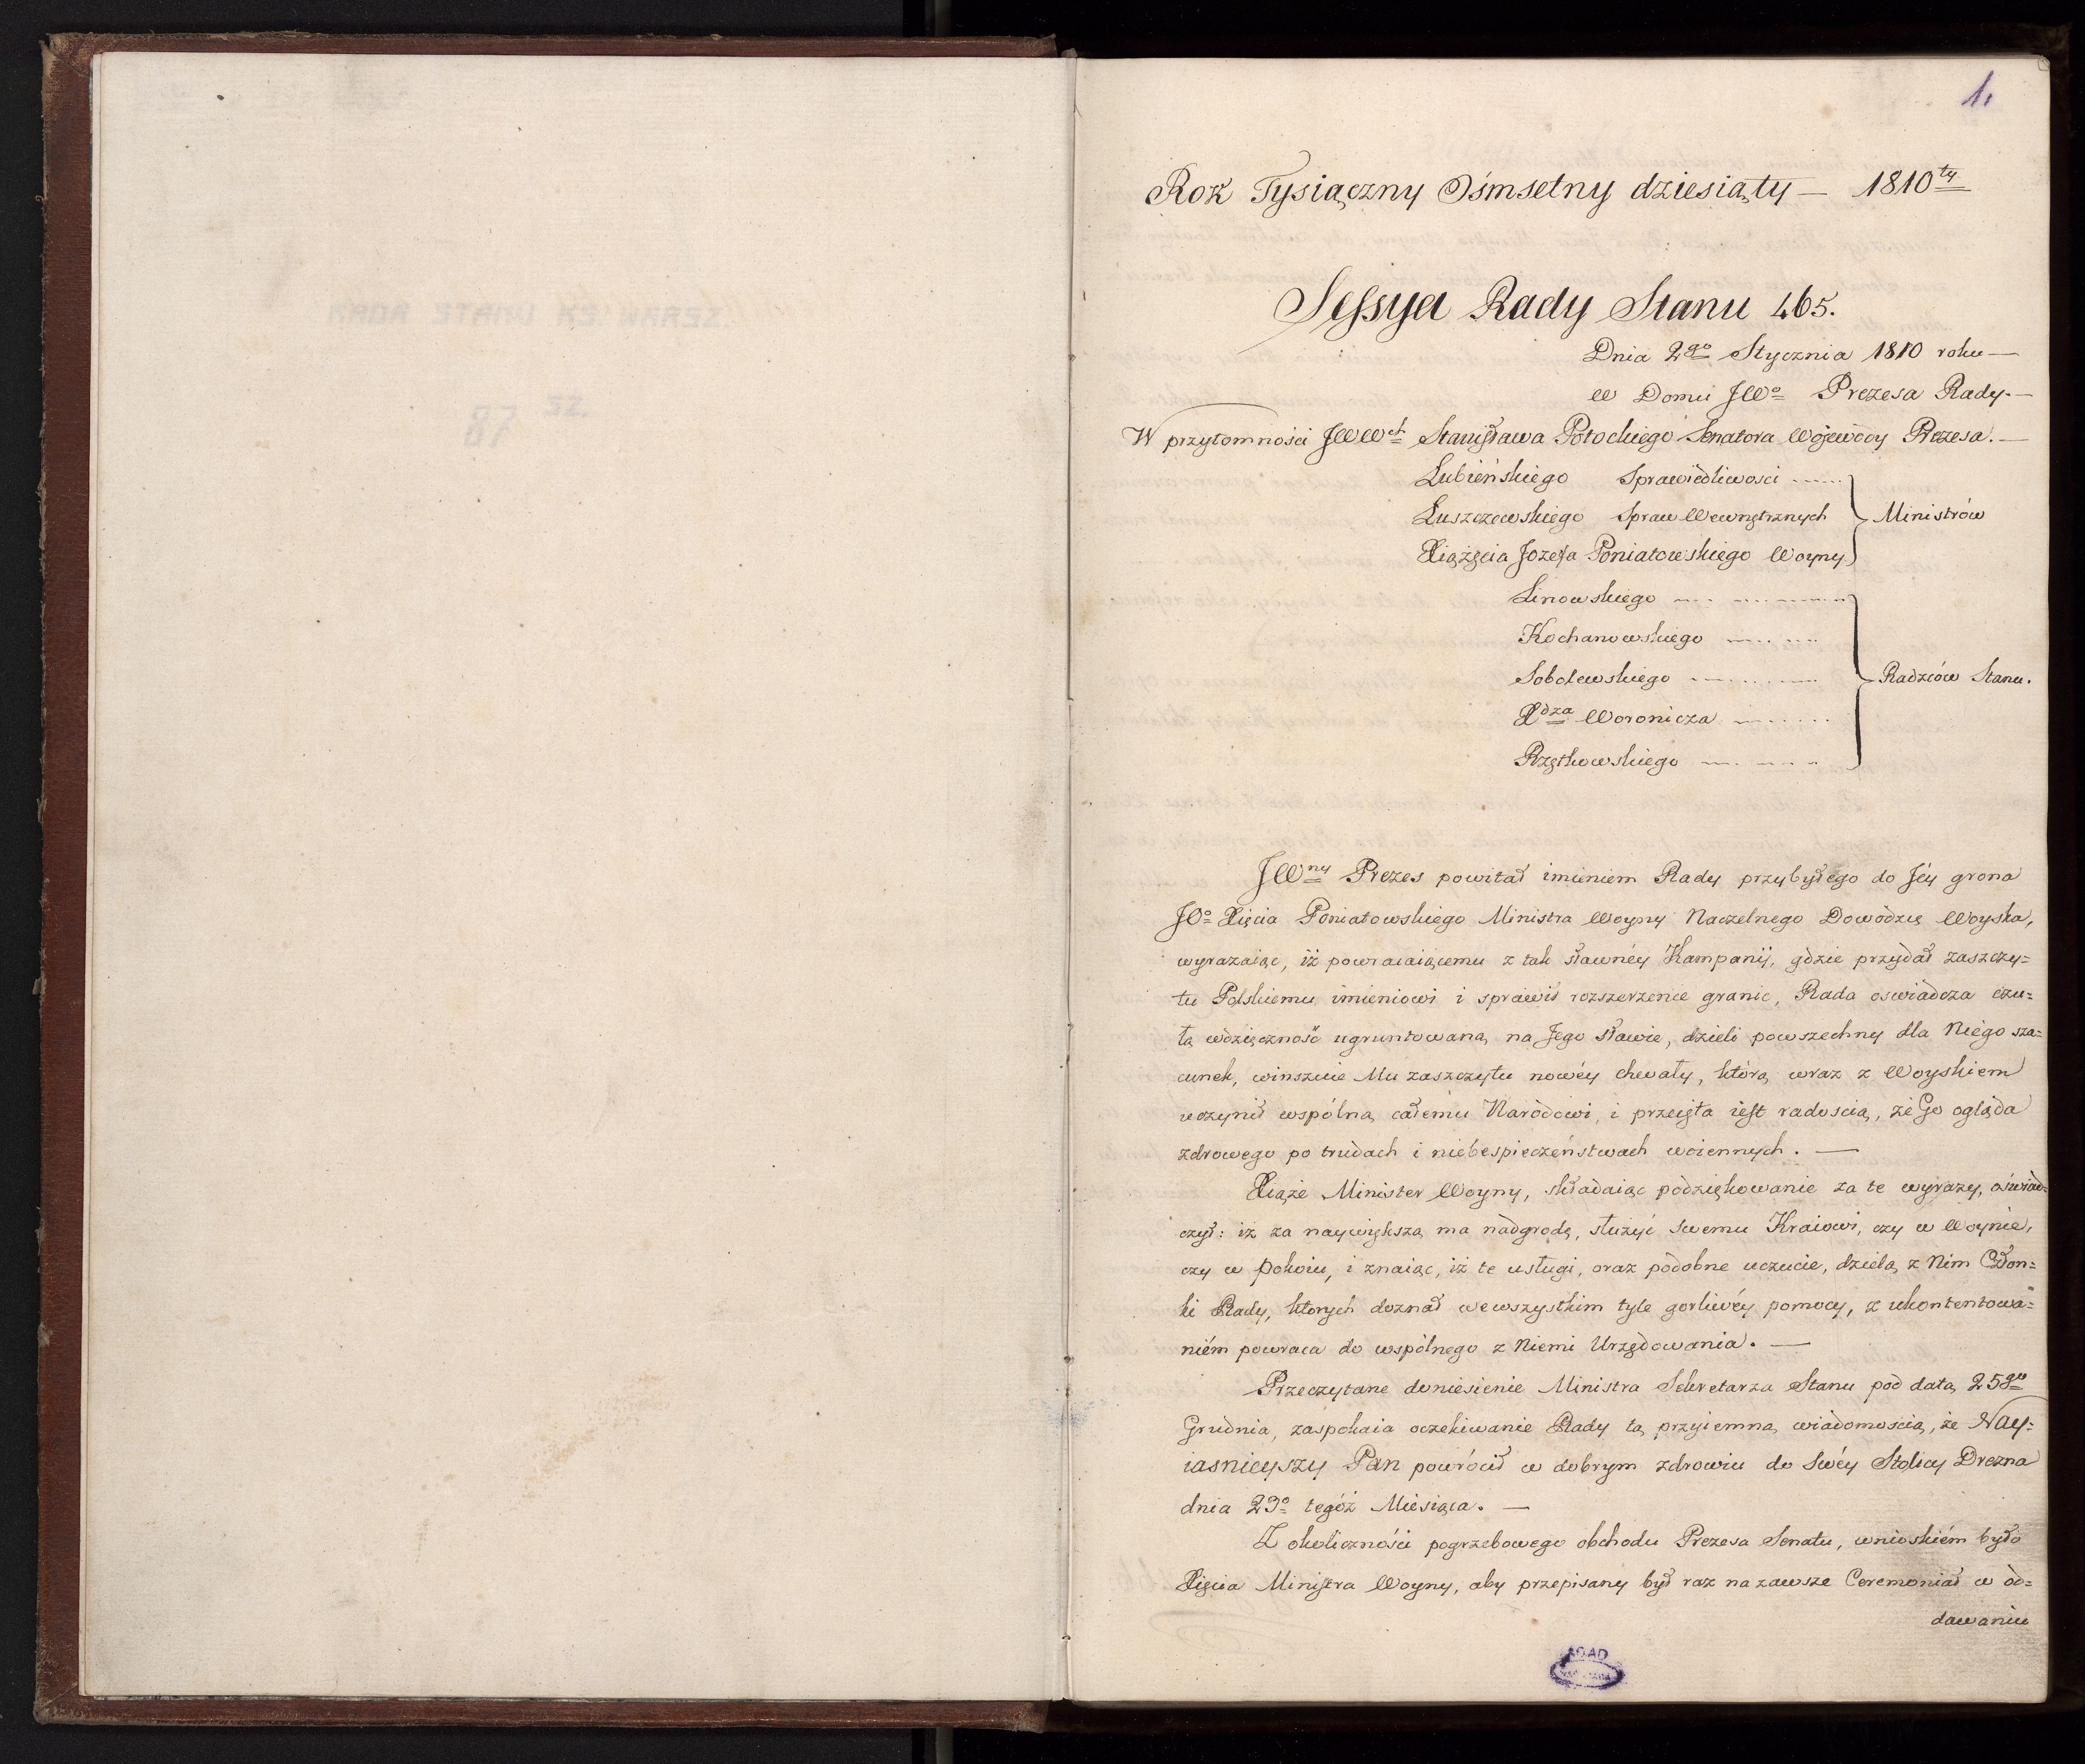 RADA STANU KS. WARSZ.
87 SZ.
1.
Rok Tysiączny Ośmsetny dziesiąty — 1810ty
Sessya Rady Stanu 465.
Dnia 2go Stycznia 1810 roku —
w Domu JWo Prezesa Rady. —
W przytomności JWWch Stanisława Potockiego Senatora Wojewody Prezesa. —
Lubieńskiego Sprawiedliwości
Łuszczewskiego Spraw Wewnętrznych Ministrów
Xiążęcia Jozefa Poniatowskiego Woyny
Linowskiego
Kochanowskiego
Sobolewskiego Radzców Stanu.
Xdza Woronicza
Rzętkowskiego
JWny Prezes powitał imieniem Rady przybyłego do Jéy grona
JOo Xięcia Poniatowskiego Ministra Woyny Naczelnego Dowódzcę Woyska,
wyrazaiąc, iż powracaiącemu z tak sławnéy Kampanij, gdzie przydał zaszczy=
tu Polskiemu imieniowi i sprawił rozszerzenie granic, Rada oswiadcza czu=
łą wdzięczność ugruntowaną na Jego sławie, dzieli powszechny dla Niego sza=
cunek, winszuie Mu zaszczytu nowéy chwały, którą wraz z Woyskiem
uczynił wspólną całemu Narodowi, i przeięta iest radoscią, że Go ogląda
zdrowego po trudach i niebespieczeństwach woiennych. —
Xiąże Minister Woyny, składaiąc podziękowanie za te wyrazy, oświad=
czył: iż za naywiększą ma nadgrodę, służyć swemu Kraiowi, czy w Woynie,
czy w pokoiu, i znaiąc, iż te usługi, oraz podobne uczucie, dzielą z Nim Człon=
ki Rady, ktorych doznał we wszystkim tyle gorliwéy pomocy, z ukontentowa=
niém powraca do wspólnego z Niemi Urzędowania. —
Przeczytane doniesienie Ministra Sekretarza Stanu pod datą 25go
Grudnia, zaspokaia oczekiwanie Rady tą przyiemną wiadomoscią, że Nay=
iasnieyszy Pan powrócił w dobrym zdrowiu do Swéy Stolicy Drezna
dnia 23o tegóż Miesiąca. —
Z okoliczności pogrzebowego obchodu Prezesa Senatu, wnioskiém było
Xięcia Ministra Woyny, aby przepisany był raz na zawsze Ceremoniał w od=
dawaniu
AGAD